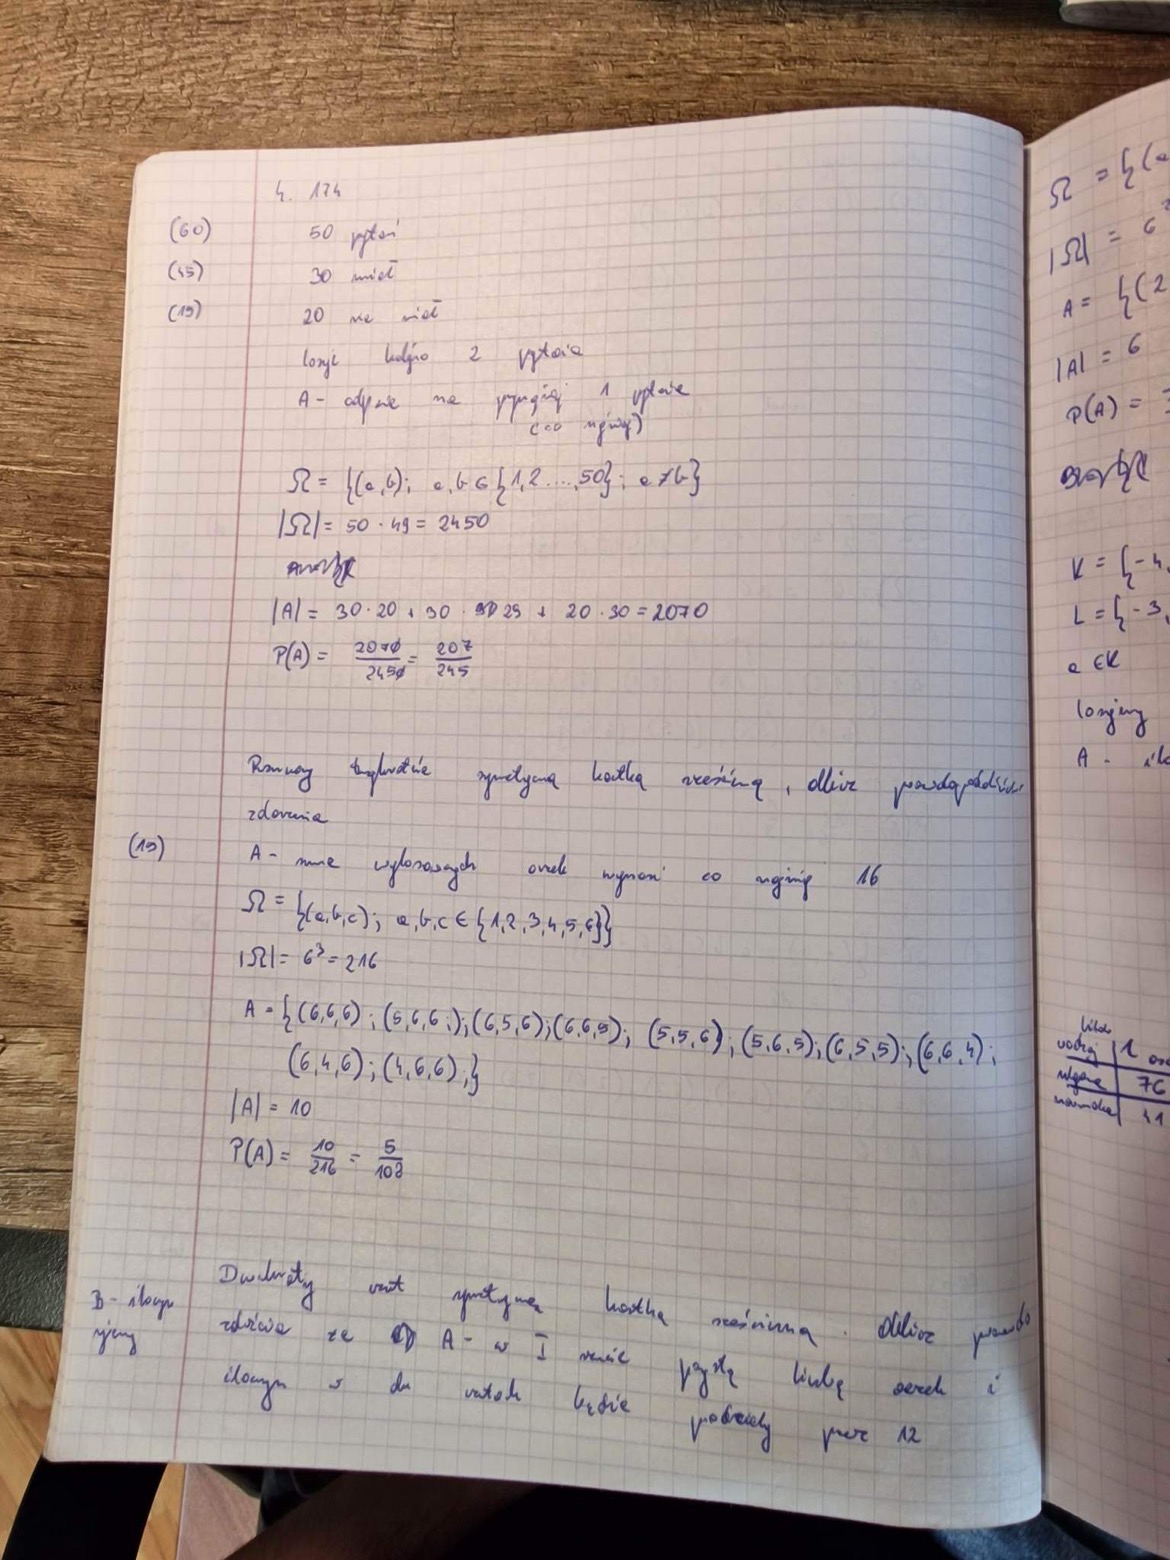 4. 174
(60) 50 pytań
(45) 30 umiał
(19) 20 nie umiał
losuje kolejno 2 pytania
A - odpowie na przynajmniej 1 pytanie
(co najmniej)
Ω = {(a,b); a,b ∈ {1,2....,50}; a≠b}
|Ω| = 50 · 49 = 2450
|A| = 30 · 20 + 30 · 29 + 20 · 30 = 2070
P(A) = 2070/2450 = 207/245
Rzucamy trzykrotnie symetryczną kostką sześcienną, oblicz prawdopodobieństwo
zdarzenia
(19) A - suma wylosowanych oczek wynosi co najmniej 16
Ω = {(a,b,c); a,b,c ∈ {1,2,3,4,5,6}}
|Ω| = 6³ = 216
A = {(6,6,6); (5,6,6;); (6,5,6); (6,6,5); (5,5,6); (5,6,5); (6,5,5); (6,6,4);
(6,4,6); (4,6,6);}
|A| = 10
P(A) = 10/216 = 5/108
Dwukrotny rzut symetryczną kostką sześcienną. Oblicz prawdo
B - iloczyn
zdarzenia że A - w I rzucie parzystą liczbę oczek i
iloczyn w du rzutach będzie podzielny przez 12
Ω = {(a
|Ω| = 6²
A = {(2
|A| = 6
P(A) =
K = {-4,
L = {-3,
a ∈ K
losujemy
A -
76
41